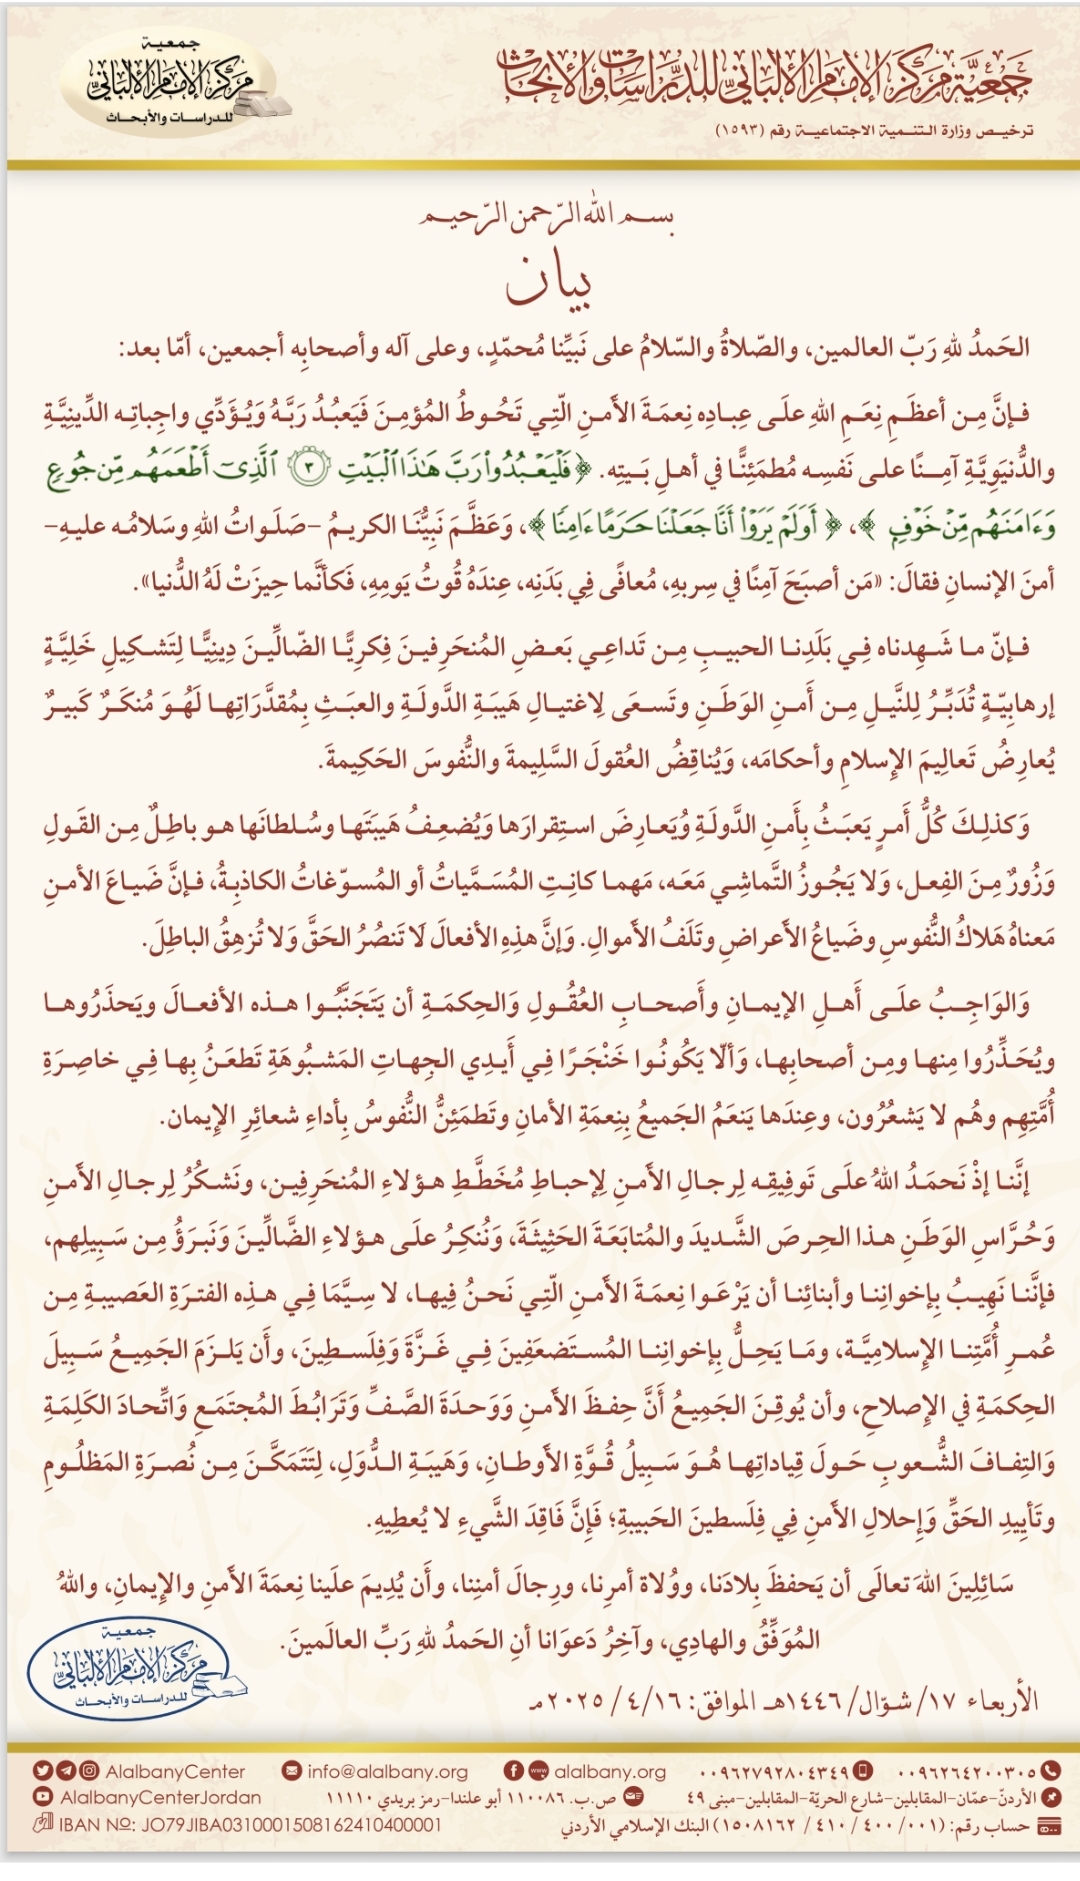 جمعية مركز الإمام الألباني للدراسات والأبحاث
ترخيص وزارة التنمية الاجتماعية رقم (١٥٩٣)
جمعية
مركز الإمام الألباني
للدراسات والأبحاث
بسم الله الرّحمن الرّحيم
بيان
الحَمدُ للهِ رَبّ العالمين، والصّلاةُ والسّلامُ على نَبيِّنا مُحمّدٍ، وعلى آله وأصحابِه أجمعين، أمّا بعد:
فإنَّ مِن أعظَمِ نِعَمِ اللهِ علَى عِبادِه نِعمَةَ الأمنِ الّتِي تَحُوطُ المُؤمِنَ فَيَعبُدُ رَبَّهُ وَيُؤَدِّي واجِباتِه الدِّينِيَّةَ
والدُّنيَوِيَّةَ آمِنًا على نَفسِه مُطمَئِنًّا في أهلِ بَيتِه. ﴿فَلْيَعْبُدُوا۟ رَبَّ هَـٰذَا ٱلْبَيْتِ ٣ ٱلَّذِىٓ أَطْعَمَهُم مِّن جُوعٍ
وَءَامَنَهُم مِّنْ خَوْفٍۭ﴾، ﴿أَوَلَمْ يَرَوْا۟ أَنَّا جَعَلْنَا حَرَمًا ءَامِنًا﴾، وَعَظَّمَ نَبِيُّنَا الكريمُ –صَلَواتُ اللهِ وَسَلامُه عليهِ–
أمنَ الإنسانِ فقالَ: «مَن أصبَحَ آمِنًا في سِربِهِ، مُعافًى فِي بَدَنِه، عِندَهُ قُوتُ يَومِهِ، فَكأنَّما حِيزَتْ لَهُ الدُّنيا».
فإنّ ما شَهِدناه فِي بَلَدِنا الحبيبِ مِن تَداعِي بَعضِ المُنحَرِفينَ فِكرِيًّا الضّالِّينَ دِينِيًّا لِتَشكِيلِ خَلِيَّةٍ
إرهابِيّةٍ تُدَبِّرُ لِلنَّيلِ مِن أَمنِ الوَطَنِ وتَسعَى لِاغتيالِ هَيبَةِ الدَّولَةِ والعبَثِ بِمُقدَّرَاتِها لَهُوَ مُنكَرٌ كَبيرٌ
يُعارِضُ تَعالِيمَ الإِسلامِ وأحكامَه، وَيُناقِضُ العُقولَ السَّلِيمةَ والنُّفوسَ الحَكِيمةَ.
وَكذلِكَ كُلُّ أَمرٍ يَعبَثُ بِأَمنِ الدَّولَةِ وُيَعارِضَ استِقرارَها وَيُضعِفُ هَيبَتَها وسُلطانَها هو باطِلٌ مِن القَولِ
وَزُورٌ مِنَ الفِعل، وَلا يَجُوزُ التَّماشِي مَعَه، مَهما كانَتِ المُسَمَّياتُ أو المُسوّغاتُ الكاذبةُ، فإنَّ ضَياعَ الأمنِ
مَعناهُ هَلاكُ النُّفوسِ وضَياعُ الأعراضِ وتَلَفُ الأموالِ. وَإنَّ هذِهِ الأفعالَ لَا تَنصُرُ الحَقَّ وَلا تُزهِقُ الباطِلَ.
وَالوَاجِبُ علَى أَهلِ الإيمانِ وأَصحابِ العُقُولِ وَالحِكمَةِ أن يَتَجَنَّبُوا هذه الأفعالَ ويَحذَرُوها
ويُحَذِّرُوا مِنها ومِن أصحابِها، وَألّا يَكُونُوا خَنْجَرًا فِي أَيدِي الجِهاتِ المَشبُوهَةِ تَطعَنُ بِها فِي خاصِرَةِ
أُمَّتِهِم وهُم لا يَشعُرُون، وعِندَها يَنعَمُ الجَميعُ بِنِعمَةِ الأمانِ وتَطمَئِنُّ النُّفوسُ بِأداءِ شعائِرِ الإِيمان.
إنَّنا إذْ نَحمَدُ اللهُ علَى تَوفِيقِه لِرجالِ الأمنِ لِإحباطِ مُخَطَّطِ هؤلاءِ المُنحَرِفِين، ونَشكُرُ لِرجالِ الأمنِ
وَحُرَّاسِ الوَطَنِ هذا الحِرصَ الشَّديدَ والمُتابَعَةَ الحَثِيثَةَ، وَنُنكِرُ علَى هؤلاءِ الضَّالِّينَ وَنَبرَؤُ مِن سَبِيلِهم،
فإنَّنا نَهِيبُ بِإخوانِنا وأبنائِنا أن يَرْعَوا نِعمَةَ الأمنِ الّتِي نَحنُ فِيها، لا سِيَّمَا فِي هذِه الفترَةِ العَصيبةِ مِن
عُمرِ أُمَّتِنا الإِسلامِيَّة، ومَا يَحِلُّ بِإخوانِنا المُستَضعَفِينَ فِي غَزَّةَ وَفِلَسطِينَ، وأَن يَلزَمَ الجَمِيعُ سَبِيلَ
الحِكمَةِ في الإِصلاحِ، وأن يُوقِنَ الجَمِيعُ أنَّ حِفظَ الأمنِ وَوَحدَةَ الصَّفِّ وَتَرَابُطَ المُجتَمَعِ وَاتِّحادَ الكَلِمَةِ
وَالتِفافَ الشُّعوبِ حَولَ قِياداتِها هُوَ سَبِيلُ قُوَّةِ الأوطانِ، وَهَيبَةِ الدُّوَلِ، لِتَتَمَكَّنَ مِن نُصرَةِ المَظلُومِ
وتَأيِيدِ الحَقِّ وَإحلالِ الأمنِ فِي فِلَسطينَ الحَبيبةِ؛ فَإنَّ فَاقِدَ الشَّيءِ لا يُعطِيهِ.
سَائِلِينَ اللهَ تعالَى أن يَحفظَ بِلادَنا، ووُلاةَ أمرِنا، ورِجالَ أمنِنا، وأَن يُدِيمَ علَينا نِعمَةَ الأَمنِ والإِيمانِ، واللهُ
المُوَفِّقُ والهادِي، وآخِرُ دَعوَانا أنِ الحَمدُ للهِ رَبِّ العالَمينَ.
جمعية
مركز الإمام الألباني
للدراسات والأبحاث
الأربعاء ١٧/ شوّال/ ١٤٤٦هـ الموافق: ١٦/ ٤/ ٢٠٢٥مـ
٠٠٩٦٢٦٤٢٠٠٣٠٥ ٠٠٩٦٢٧٩٢٨٠٤٣٤٩ alalbany.org info@alalbany.org AlalbanyCenter
الأردنّ-عمّان-المقابلين-شارع الحريّة-المقابلين-مبنى ٤٩ ص.ب. ١١٠٠٨٦ أبو علندا-رمز بريدي ١١١١٠ AlalbanyCenterJordan
حساب رقم: (٠٠١/ ٤٠٠/ ٤١٠/ ١٥٠٨١٦٢) البنك الإسلامي الأردني IBAN Nº: JO79JIBA0310001508162410400001